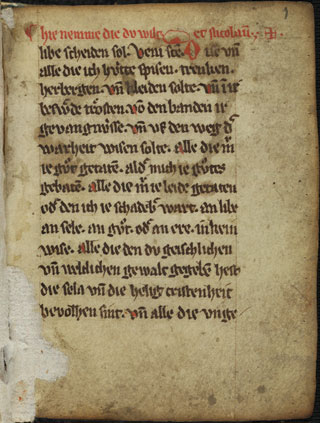 hie nemme die dv wilt et nicolaū
libe scheiden sol. veni scē. Dise vn̄
alle die ich hv̊tte spisen. trenken.
herbergen. vn̄ kleiden solte. vn̄ ī ir
trösten. vō den banden ir
gevangnv̊sse. vn̄ vf den weg dˢ
warheit wisen solte. alle die mˢ
ie gv̊t getatē. ald mich ie gv̊tes
gebatē. alle die mˢ ie leide getaten
odˢ den ich ie schadēb wart. an libe
an sele. an gv̊t. odˢ an ere. in keinˢ
wise. alle die den dv geischlichen
vn̄ weltlichen gewalt gegebē hest
die sela vn̄ die helig cristenheit
bevolhen sint. vn̄ alle die vnge